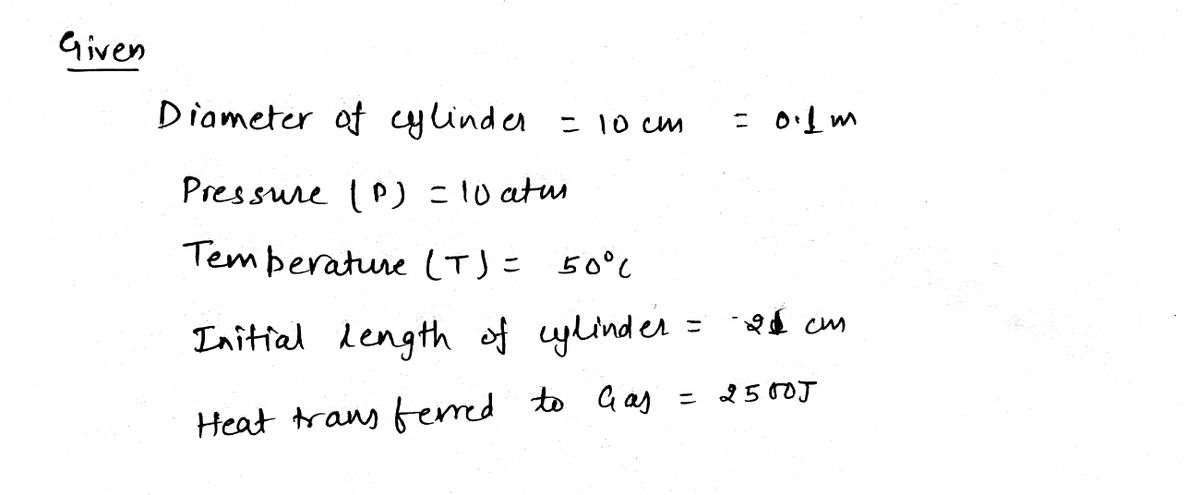 Given
Diameter of cylinder = 10 cm = 0.1 m
Pressure (P) = 10 atm
Temperature (T) = 50°C
Initial length of cylinder = cm
Heat transferred to Gas = 2500J